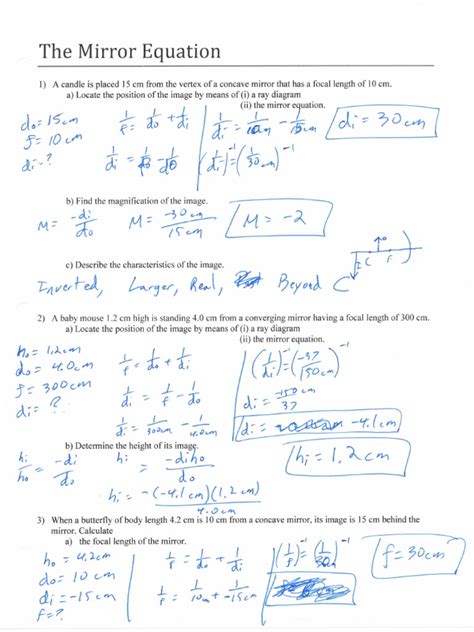 The Mirror Equation
1) A candle is placed 15 cm from the vertex of a concave mirror that has a focal length of 10 cm.
a) Locate the position of the image by means of (i) a ray diagram
(ii) the mirror equation.
do = 15cm
f = 10 cm
di = ?
1/f = 1/do + 1/di
1/di = 1/f - 1/do
1/di = 1/10cm - 1/15cm
(1/di)^-1 = (1/30 cm)^-1
di = 30 cm
b) Find the magnification of the image.
M = -di/do
M = -30 cm/15 cm
M = -2
c) Describe the characteristics of the image.
Inverted, Larger, Real, Beyond C
C F
2) A baby mouse 1.2 cm high is standing 4.0 cm from a converging mirror having a focal length of 300 cm.
a) Locate the position of the image by means of (i) a ray diagram
(ii) the mirror equation.
ho = 1.2cm
do = 4.0cm
f = 300cm
di = ?
1/f = 1/do + 1/di
1/di = 1/f - 1/do
1/di = 1/300cm - 1/4.0cm
(1/di)^-1 = (-37/150cm)^-1
di = -150 cm/37
di = -4.1cm
b) Determine the height of its image.
hi/ho = -di/do
hi = -diho/do
hi = -(-4.1 cm)(1.2 cm)/4.0cm
hi = 1.2 cm
3) When a butterfly of body length 4.2 cm is 10 cm from a concave mirror, its image is 15 cm behind the
mirror. Calculate
a) the focal length of the mirror.
ho = 4.2cm
do = 10cm
di = -15cm
f = ?
1/f = 1/do + 1/di
1/f = 1/10cm + 1/-15cm
(1/f)^-1 = (1/30cm)^-1
f = 30cm